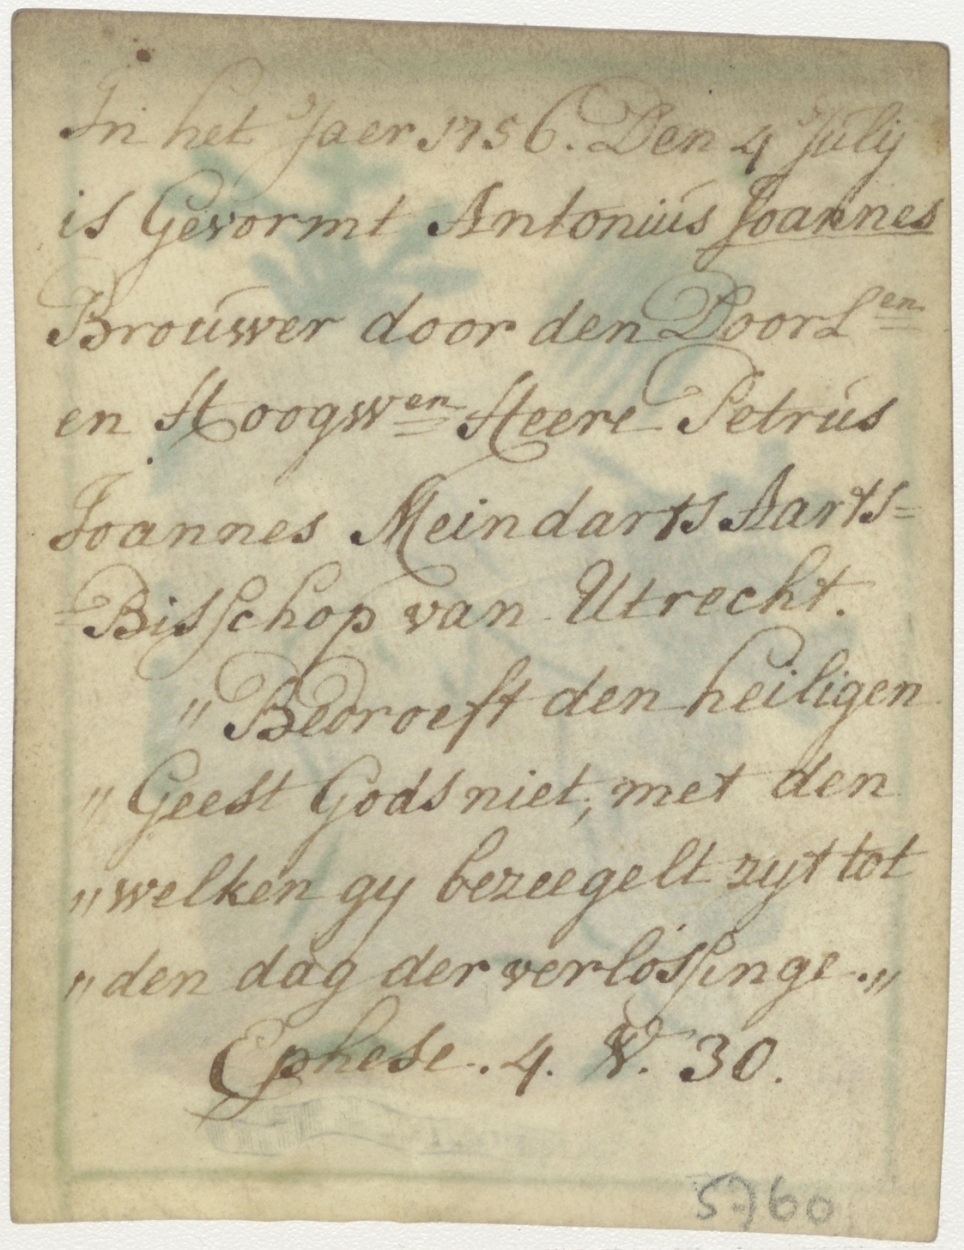 In het Jaer 1756. Den 4 Julij
is Gevormt Antonius Joannes
Brouwer door den Doorl<sup>en</sup>
en Hoogw<sup>en</sup> Heere Petrus
Joannes Meindarts Aarts=
=Bisschop van Utrecht.
„Bedroeft den heiligen
„Geest Gods niet, met den
„welken gy bezeegelt zyt tot
„den dag der verlossinge.„
Ephese. 4. V. 30.
5760